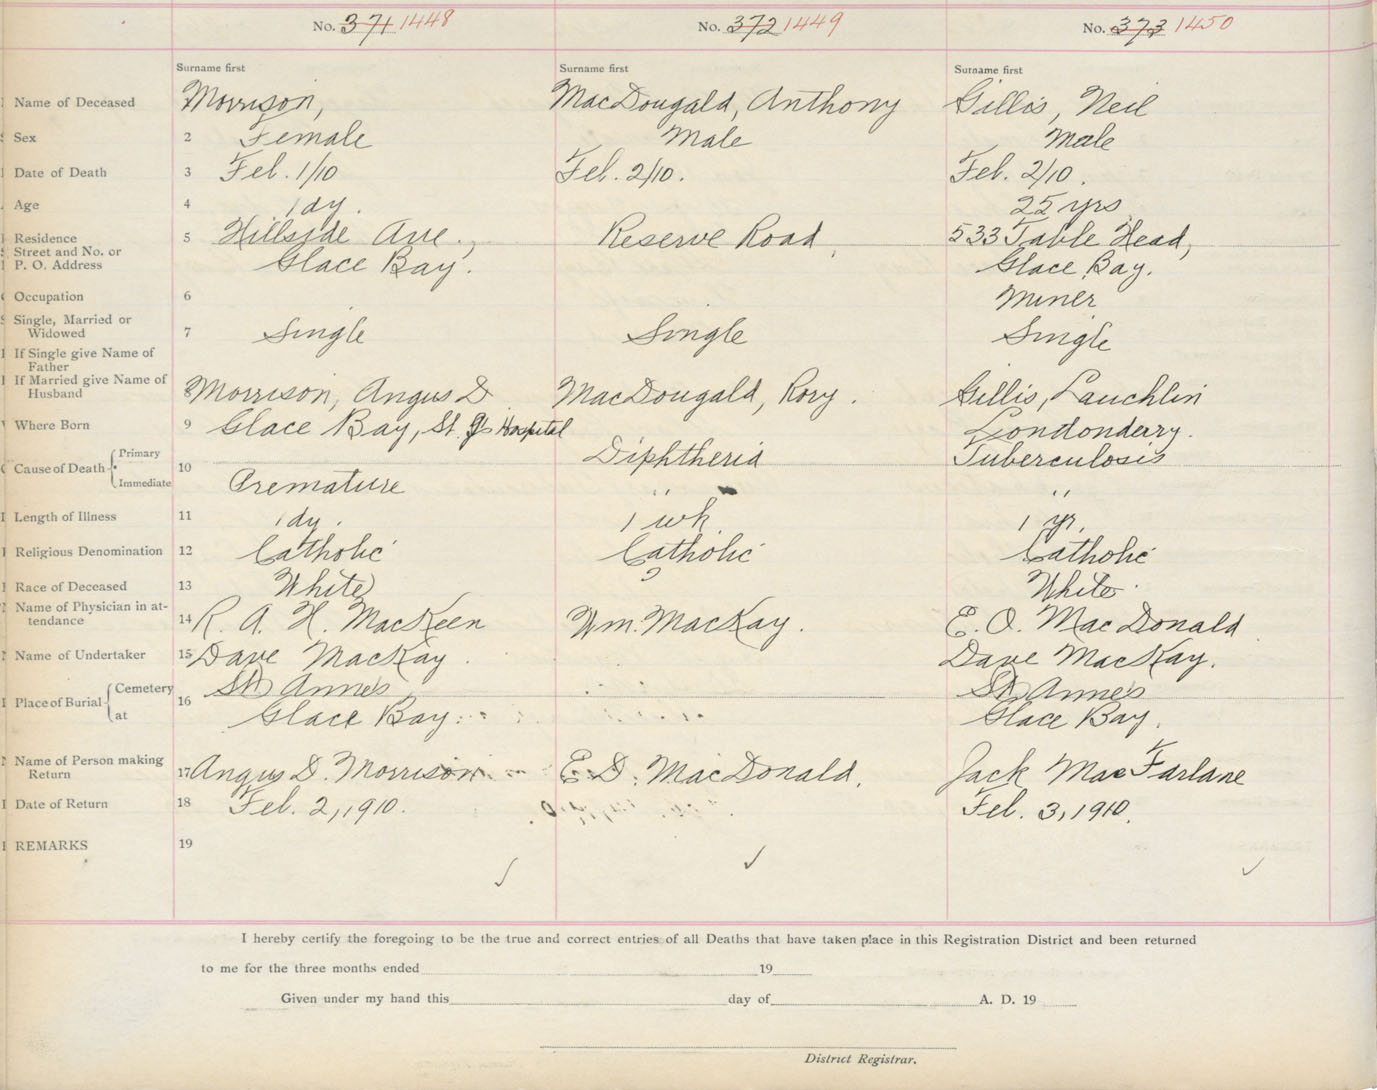 No. 371 1448 No. 372 1449 No. 373 1450
Surname first Surname first Surname first
Name of Deceased Morrison, MacDougald, Anthony Gillis, Neil
Sex 2 Female Male Male
Date of Death 3 Feb. 1/10 Feb. 2/10. Feb. 2/10.
Age 4 1 dy. 25 yrs
Residence 5 Hillside Ave., Reserve Road, 533 Table Head,
Street and No. or
P. O. Address Glace Bay. Glace Bay.
Occupation 6 Miner
Single, Married or
Widowed 7 Single Single Single
If Single give Name of
Father
If Married give Name of
Husband 8 Morrison, Angus D MacDougald, Rory. Gillis, Lauchlin
Where Born 9 Glace Bay, St. J's Hospital Londonderry.
Cause of Death Primary Diphtheria Tuberculosis
10
Immediate Premature " "
Length of Illness 11 1 dy. 1 wk. 1 yr.
Religious Denomination 12 Catholic Catholic Catholic
Race of Deceased 13 White ? White.
Name of Physician in at-
tendance 14 R. A. H. MacKeen Wm. MacKay. E. O. MacDonald
Name of Undertaker 15 Dave MacKay Dave MacKay.
Place of Burial Cemetery St Anne's St Anne's
16
at Glace Bay. Glace Bay.
Name of Person making
Return 17 Angus D. Morrison E. D. MacDonald. Jack MacFarlane
Date of Return 18 Feb. 2, 1910. " " Feb. 3, 1910.
REMARKS 19
I hereby certify the foregoing to be the true and correct entries of all Deaths that have taken place in this Registration District and been returned
to me for the three months ended 19
Given under my hand this day of A. D. 19
District Registrar.